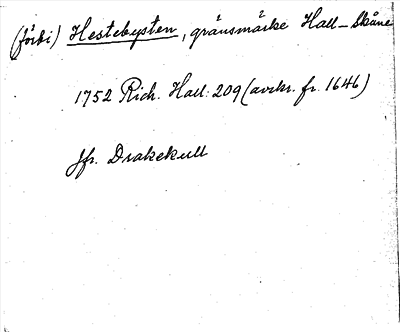 (förbi) Hestebysten, gränsmärke Hall–Skåne
1752 Rich. Hall: 209 (avskr. fr. 1646)
Jfr. Drakekull